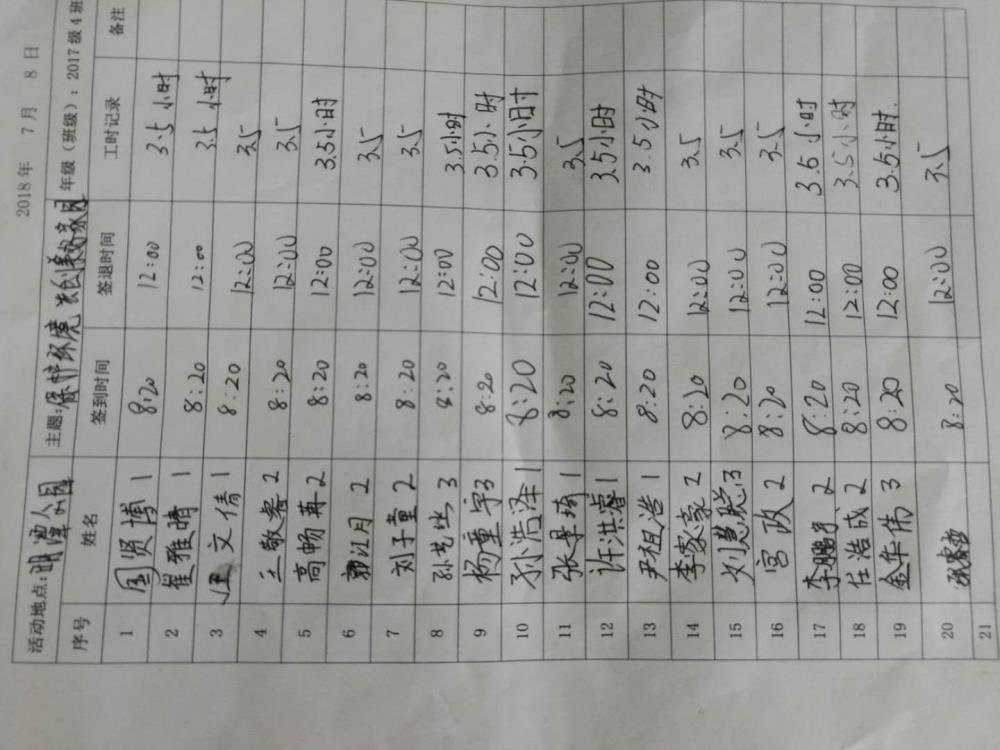 2018年 7月 8日
活动地点: 明潭公园 主题: 保护环境 共创美好家园 年级(班级): 2017级4班
序号 姓名 签到时间 签退时间 工时记录 备注
1 国贤博 1 8:20 12:00 3.5小时
2 崔雅晴 1 8:20 12:00 3.5小时
3 文倩 1 8:20 12:00 3.5
4 王敬睿 2 8:20 12:00 3.5
5 高畅苒 2 8:20 12:00 3.5小时
6 郭江月 2 8:20 12:00 3.5
7 刘子童 2 8:20 12:00 3.5
8 孙艺 3 8:20 12:00 3.5小时
9 杨童宇 3 8:20 12:00 3.5小时
10 孙浩泽 1 8:20 12:00 3.5小时
11 张景琦 1 8:20 12:00 3.5
12 许洪睿 1 8:20 12:00 3.5小时
13 尹祖浩 1 8:20 12:00 3.5小时
14 李家豪 2 8:20 12:00 3.5
15 刘慧聪 3 8:20 12:00 3.5
16 宫政 2 8:20 12:00 3.5
17 李鹏 2 8:20 12:00 3.5小时
18 任浩成 2 8:20 12:00 3.5小时
19 金作伟 3 8:20 12:00 3.5小时.
20 8:20 12:00 3.5
21